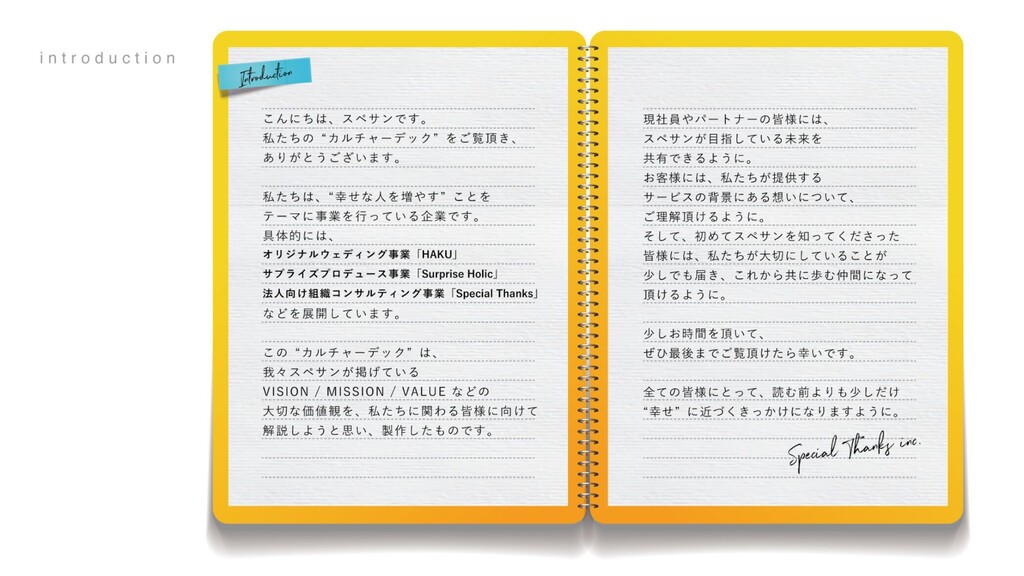 introduction
Introduction
こんにちは、スペサンです。
私たちの “カルチャーデック” をご覧頂き、
ありがとうございます。
私たちは、“幸せな人を増やす” ことを
テーマに事業を行っている企業です。
具体的には、
オリジナルウェディング事業「HAKU」
サプライズプロデュース事業「Surprise Holic」
法人向け組織コンサルティング事業「Special Thanks」
などを展開しています。
この “カルチャーデック” は、
我々スペサンが掲げている
VISION / MISSION / VALUE などの
大切な価値観を、私たちに関わる皆様に向けて
解説しようと思い、製作したものです。
現社員やパートナーの皆様には、
スペサンが目指している未来を
共有できるように。
お客様には、私たちが提供する
サービスの背景にある想いについて、
ご理解頂けるように。
そして、初めてスペサンを知ってくださった
皆様には、私たちが大切にしていることが
少しでも届き、これから共に歩む仲間になって
頂けるように。
少しお時間を頂いて、
ぜひ最後までご覧頂けたら幸いです。
全ての皆様にとって、読む前よりも少しだけ
“幸せ” に近づくきっかけになりますように。
Special Thanks inc.